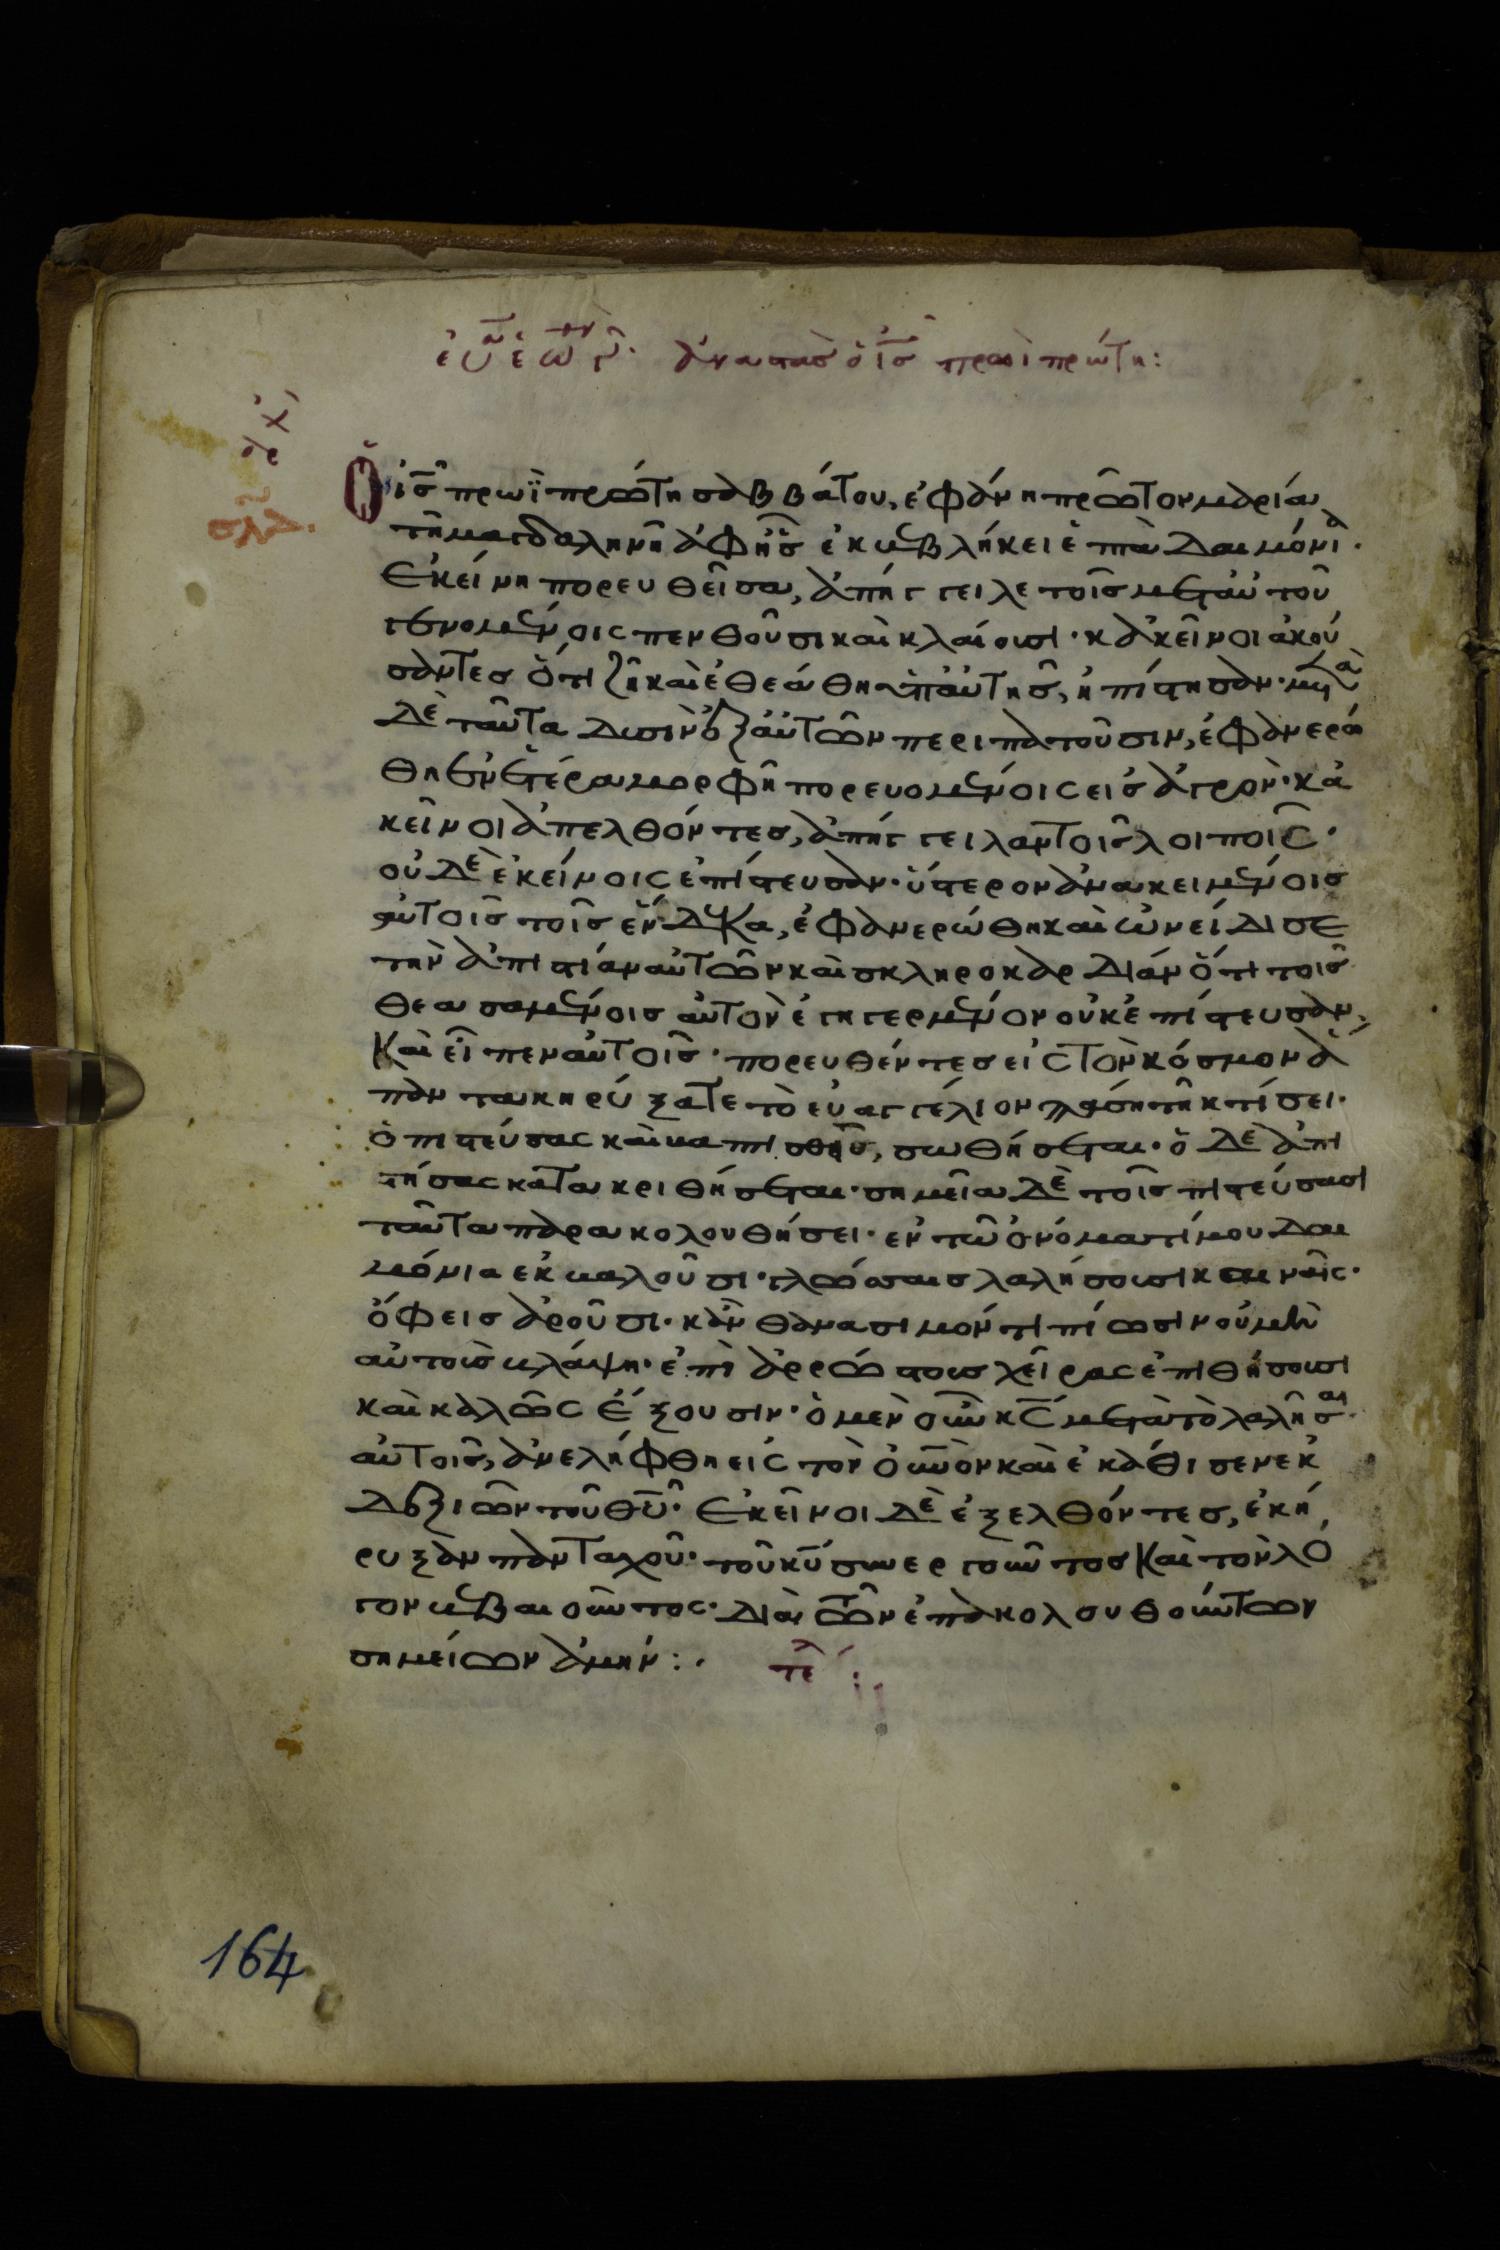 ἀναστὰσ ὁ ισ πρωὶ πρώτη:
ἀρχ
σλδ.
Ὁ ισ πρωῒ πρώτη σαββάτου, ἐφάνη πρῶτον μαρία
τῆ μαγδαληνῆ ἀφ ἧσ ἐκβεβλήκει ἑπτὰ δαιμόνια.
Ἐκείνη πορευθεῖσα, ἀπήγγειλε τοῖσ μεταὐτοῦ
γενομένοις πενθοῦσι καὶ κλαίουσι· κἀκεῖνοι ἀκού
σαντεσ ὅτι ζῆ καὶ ἐθεάθη ὑπαὐτησ, ἠπίστησαν· μετὰ
δὲ ταῦτα δυσὶν ἐξ αὐτῶν περιπατοῦσιν, ἐφανερώ
θη ἐν ἑτέρα μορφῆ πορευομένοις εἰσ ἀγρον· κα
κεῖνοι ἀπελθόντεσ, ἀπήγγειλαν τοῖσ λοιποῖς·
οὐδὲ ἐκείνοις ἐπίστευσαν· ὕστερον ἀνακειμένοισ
αὐτοῖσ τοῖσ ἕνδεκα, ἐφανερώθη καὶ ὠνείδισε
τὴν ἀπιστίαν αὐτῶν καὶ σκληροκαρδίαν ὅτι τοῖσ
θεασαμένοισ αὐτὸν ἐγηγερμένον οὐκ ἐπίστευσαν,
Καὶ εἶπεν αὐτοῖσ· πορευθέντεσ εἰς τὸν κόσμον ἅ
παντα κηρύξατε τὸ εὐαγγέλιον πάση τῆ κτίσει·
ὁ πιστεύσας καὶ βαπτισθεὶσ, σωθήσεται· ὁ δὲ ἀπι
στήσας κατακριθήσεται· σημεῖα δὲ τοῖσ πιστεύσασι
ταῦτα παρακολουθήσει· ἐν τῶ ὀνόματί μου δαι
μόνια ἐκβαλοῦσι· γλώσσαισ λαλήσουσι καιναῖς·
ὄφεισ ἀροῦσι· κἂν θανάσιμόν τι πίωσιν οὐ μὴ
αὐτοὺσ βλάψη· ἐπὶ ἀρρώστουσ χεῖρας ἐπιθήσουσι
καὶ καλῶς ἕξουσιν· ὁ μὲν οὖν κς μετὰ τὸ λαλῆσαι
αὐτοῖσ, ἀνελήφθη εἰς τὸν οὐνὸν καὶ ἐκάθισεν ἐκ
δεξιῶν τοῦ θυ· Ἐκεῖνοι δὲ ἐξελθόντεσ, ἐκή
ρυξαν πανταχοῦ· τοῦ κυ συνεργοῦντοσ Καὶ τὸν λό
γον βεβαιοῦντος· διὰ τῶν ἐπακολουθούντων
σημείων ἀμήν:·
τε:
164